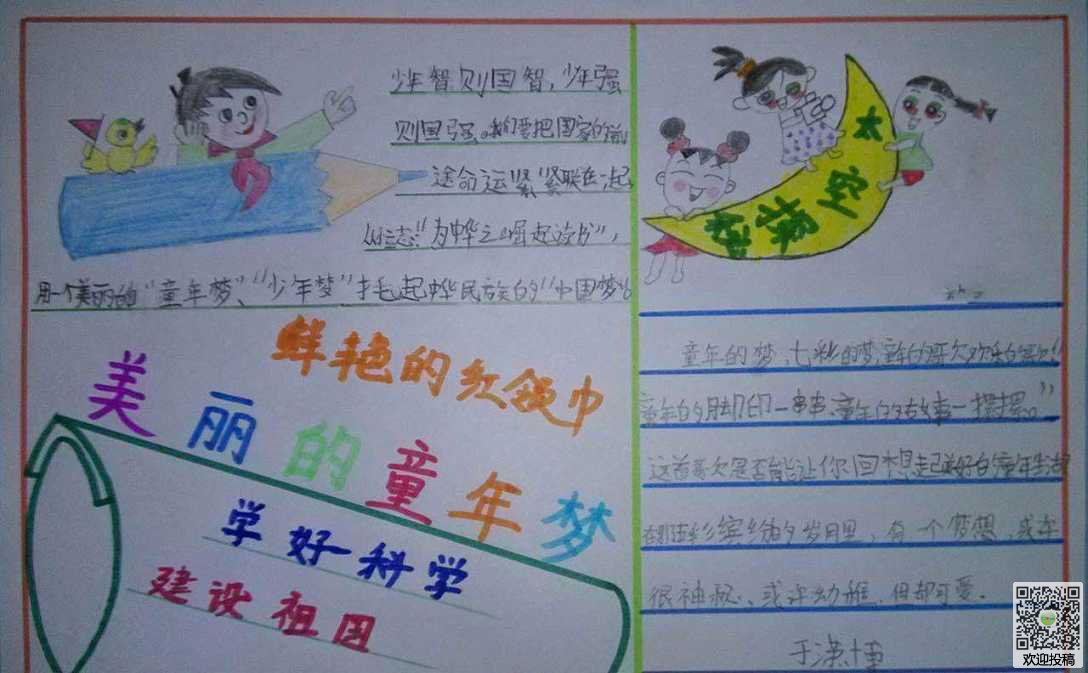 少年智则国智，少年强
则国强。我们要把国家的前
途命运紧紧联在一起，
立志“为中华之崛起读书”，
用一个美丽的“童年梦”、“少年梦”托起中华民族的“中国梦”
鲜艳的红领巾
美丽的童年梦
学好科学
建设祖国
太空探秘
童年的梦，七彩的梦，童年的歌欢乐的歌
童年的脚印一串串，童年的故事一摞摞。”
这首歌是否能让你回想起美好的童年生活
在那五彩缤纷的岁月里，有一个梦想，或许
很神秘、或许幼稚、但都可爱。
于潇博
欢迎投稿